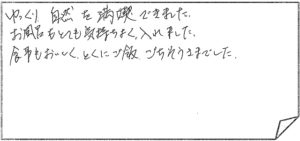 ゆっくり 自然 を 満喫 できました.
お風呂もとても気持ちよく, 入れました.
食事もおいしく, とくにご飯 ごちそうさまでした.